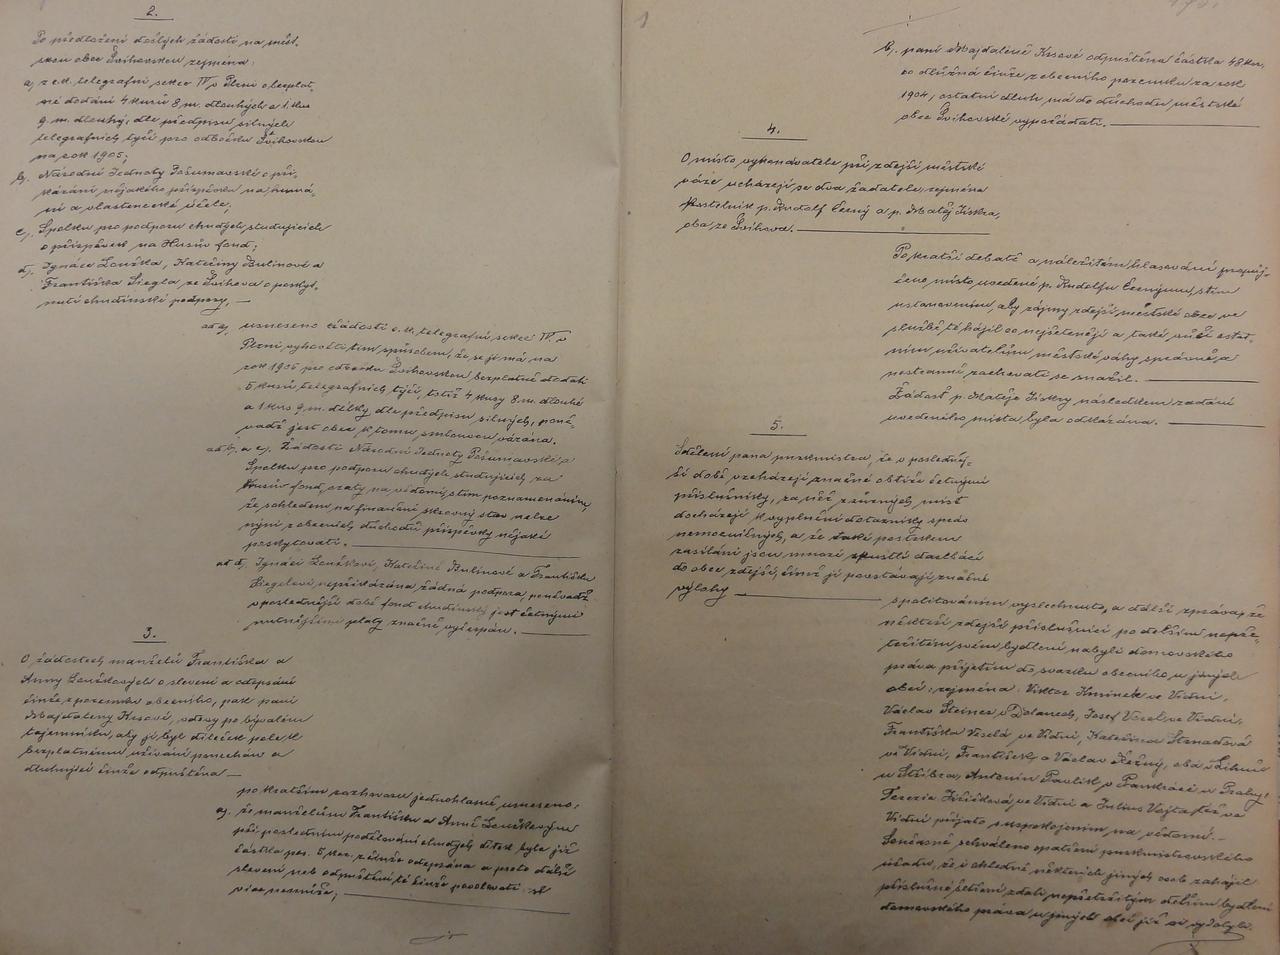 2.
Po předložení došlých žádostí na měst.
skou obec Švihovskou zejména:
a, z c.k. telegrafní sekce IV. v Plzni o bezplat,
né dodání 4 kusů 8 m. dlouhých a 1. kus
9. m. dlouhý, dle předpisu silných
telegrafních tyčí pro odbočku Švihovskou
na rok 1905;
b, Národní Jednoty Pošumavské o při,
kázání nějakého příspěvku na humá,
ní a vlastenecké účele;
c, Spolku pro podporu chudých studujících
o příspěvek na Husův fond;
d, Ignáce Louška, Kateřiny Bulínové a
Františka Siegla ze Švihova o poskyt,
nutí chudinské podpory, —
ad a, usneseno žádosti c.k. telegrafní sekce IV. v
Plzni vyhověti tím způsobem, že se jí má na
rok 1905 pro odbočku Švihovskou bezplatně dodati
5 kusů telegrafních tyčí, totiž 4 kusy 8 m. dlouhé
a 1 kus 9 m. délky dle předpisu silných, poně,
vadž jest obec k tomu smlouvou vázána.
ad b, a c, Žádosti Národní Jednoty Pošumavské a
Spolku pro podporu chudých studujících, na
Husův fond, vzaty na vědomí, s tím poznamenáním,
že ohledem na finanční skrovný stav nelze
nyní z obecních důchodů příspěvky nějaké
poskytovati.
ad d, Ignáci Louškovi, Kateřině Bulínové a Františku
Sieglovi nepřikázána žádná podpora, poněvadž
v poslednější době fond chudinský jest četnými
nutnějšími platy značně vyčerpán.
3.
O žádostech manželů Františka a
Anny Louškových o slevení a odepsání
činže z pozemku obecního, pak paní
Majdaleny Krsové, vdovy po bývalém
tajemníku, aby jí byl díleček polek
bezplatnému užívání ponechán a
dlužující činže odpuštěna —
po kratším rozhovoru jednohlasně usneseno:
a, že manželům Františku a Anně Louškovým
při posledním podělování chudých dítek byla již
částka per. 5 kor. z činže odepsána a proto další
slevení neb odpuštění té činže povolovati se
více nemůže;
b, paní Majdaleně Krsové odpuštěna částka 48 kor.
co dlužná činže z obecního pozemku za rok
1904, ostatní dluh má do důchodu městské
obce Švihovské vypořádati.
4.
O místo vykonavatele při zdejší městské
váze ucházejí se dva žadatele, zejména
kostelník p. Rudolf Černý a p. Matěj Jiskra,
oba ze Švihova.
Po kratší debatě a náležitém hlasování propůj,
čeno místo uvedené p. Rudolfu Černýmu, s tím
ustanovením, aby zájmy zdejší městské obce ve
službě té hájil co nejšetrněji a také vůči ostat,
ním uživatelům městské váhy správně, a
nestranně zachovati se snažil.
Žádost p. Matěje Jiskry následkem zadání
uvedeného místa byla odkázána.
5.
Sdělení pana purkmistra, že v posledněj,
ší době vzcházejí značné obtíže četnými
příslušníky, za něž z různých míst
docházejí k vyplnění dotazníky správ
nemocničných, a že také postrkem
zasíláni jsou mnozí spustlí darebáci
do obce zdejší, čímž jí povstávají značné
výlohy
s politováním vyslechnuto, a další zpráva, že
někteří zdejší příslušníci po delším nepře,
tržitém svém bydlení nabyli domovského
práva přijetím do svazku obecního v jiných
obcí: zejména: Viktor Kminek ve Vídni,
Václav Steiner v Dolanech, Josef Veselý ve Vídni,
Františka Veselá ve Vídni, Kateřina Strnadová
ve Vídni, František a Václav Řezný, oba
u Stříbra, Antonín Pavlík v Pankráci u Prahy,
Terezie Jiříčková ve Vídni a Julius Vojta též ve
Vídni přijato s uspokojením na vědomí. —
Současně schváleno opatření purkmistrovského
úřadu, že i ohledně některých jiných osob zahájil
příslušné šetření zdali nepřetržitým delším bydlení
domovského práva v jiných obcí již si vydobyli.